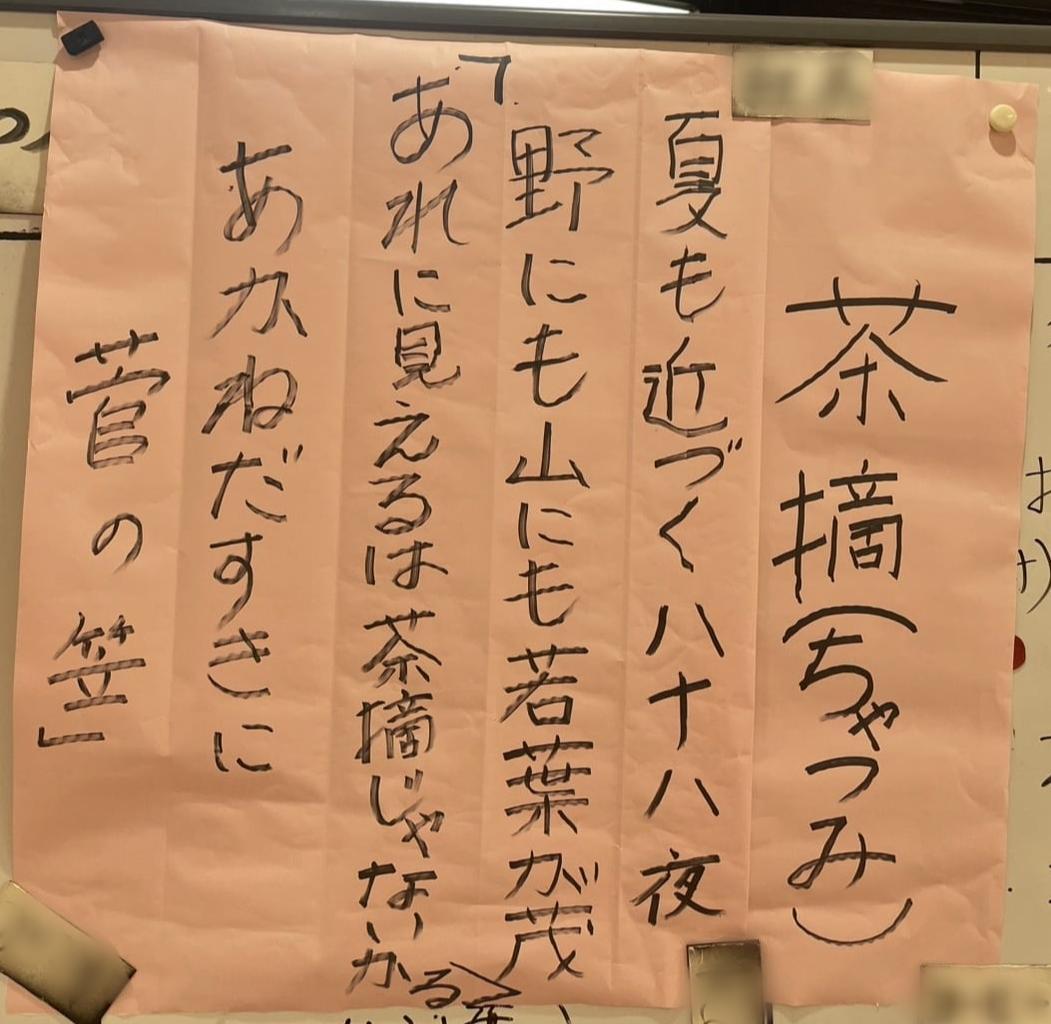 茶摘(ちゃつみ)
夏も近づく八十八夜
野にも山にも若葉が茂る
「あれに見えるは茶摘じゃないか
あかねだすきに
菅の笠」